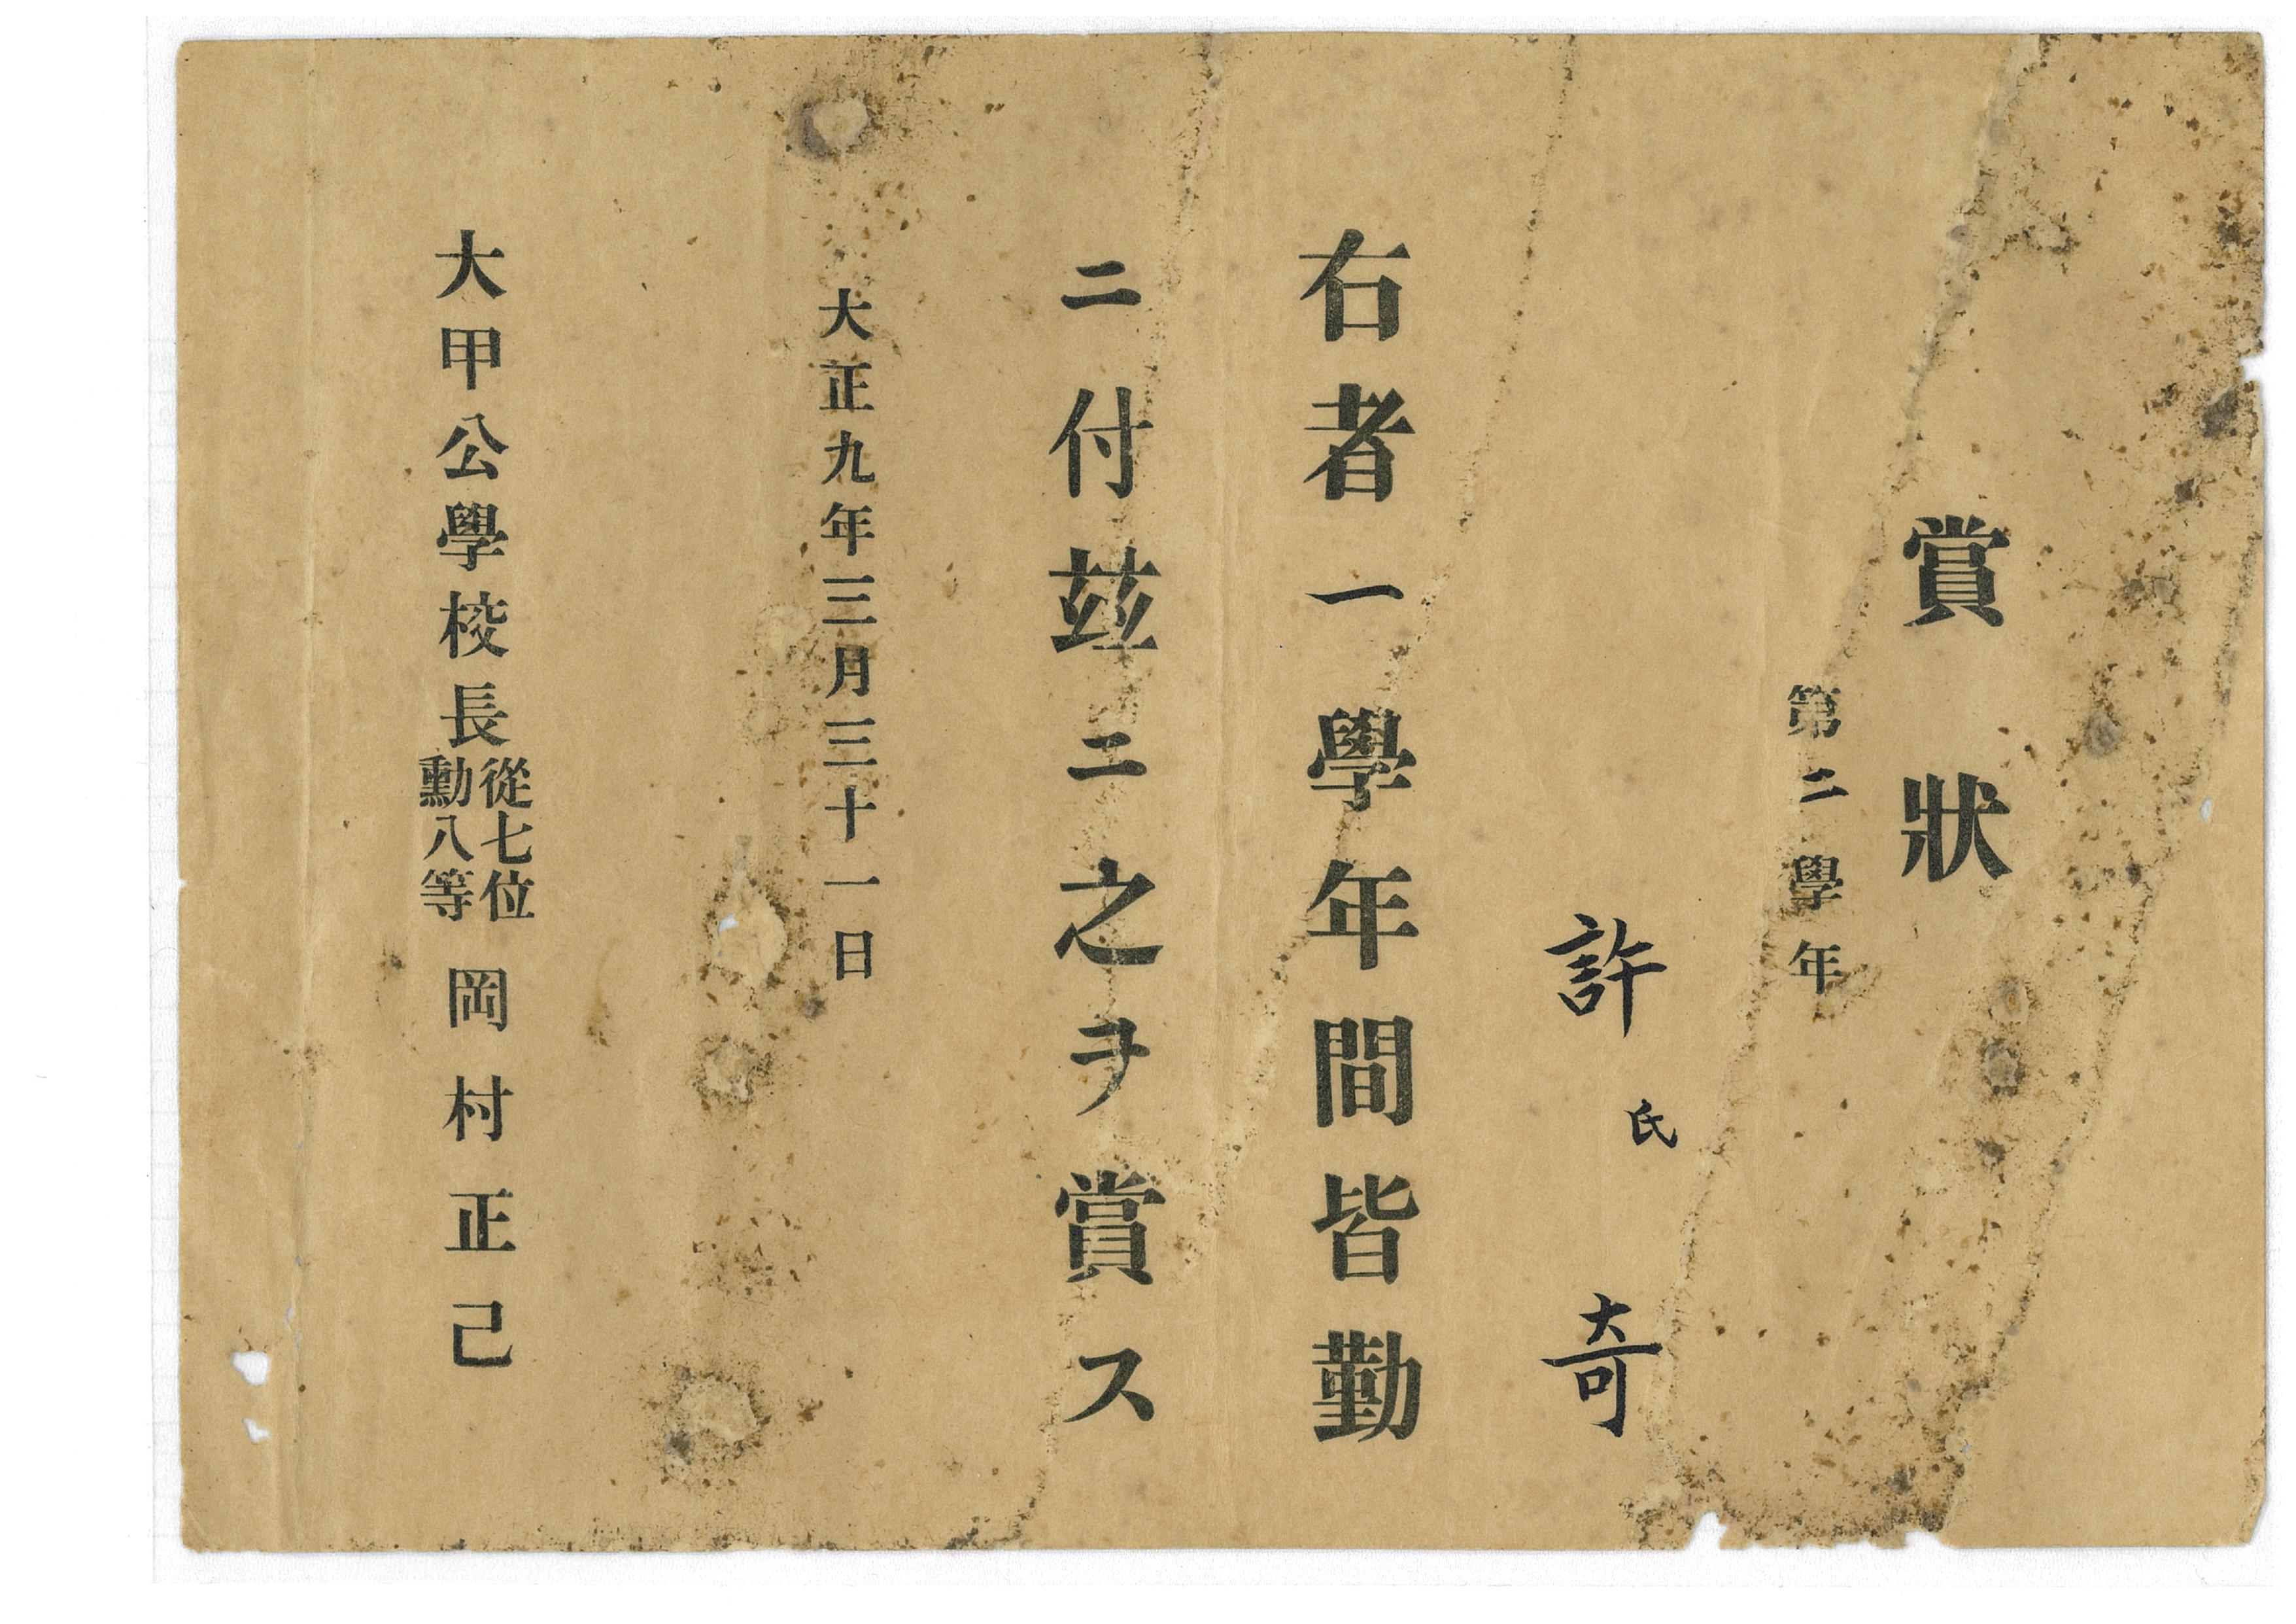 賞狀
第二學年
許氏奇
右者一學年間皆勤
ニ付茲ニ之ヲ賞ス
大正九年三月三十一日
大甲公學校長從七位勳八等岡村正己